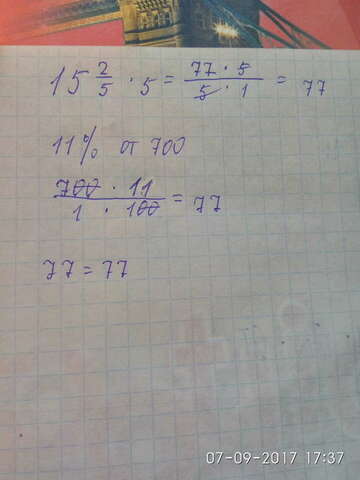 15 2/5 · 5 = 77 · 5 / 5 · 1 = 77
11% от 700
700 · 11 / 1 · 100 = 77
77 = 77
07-09-2017 17:37